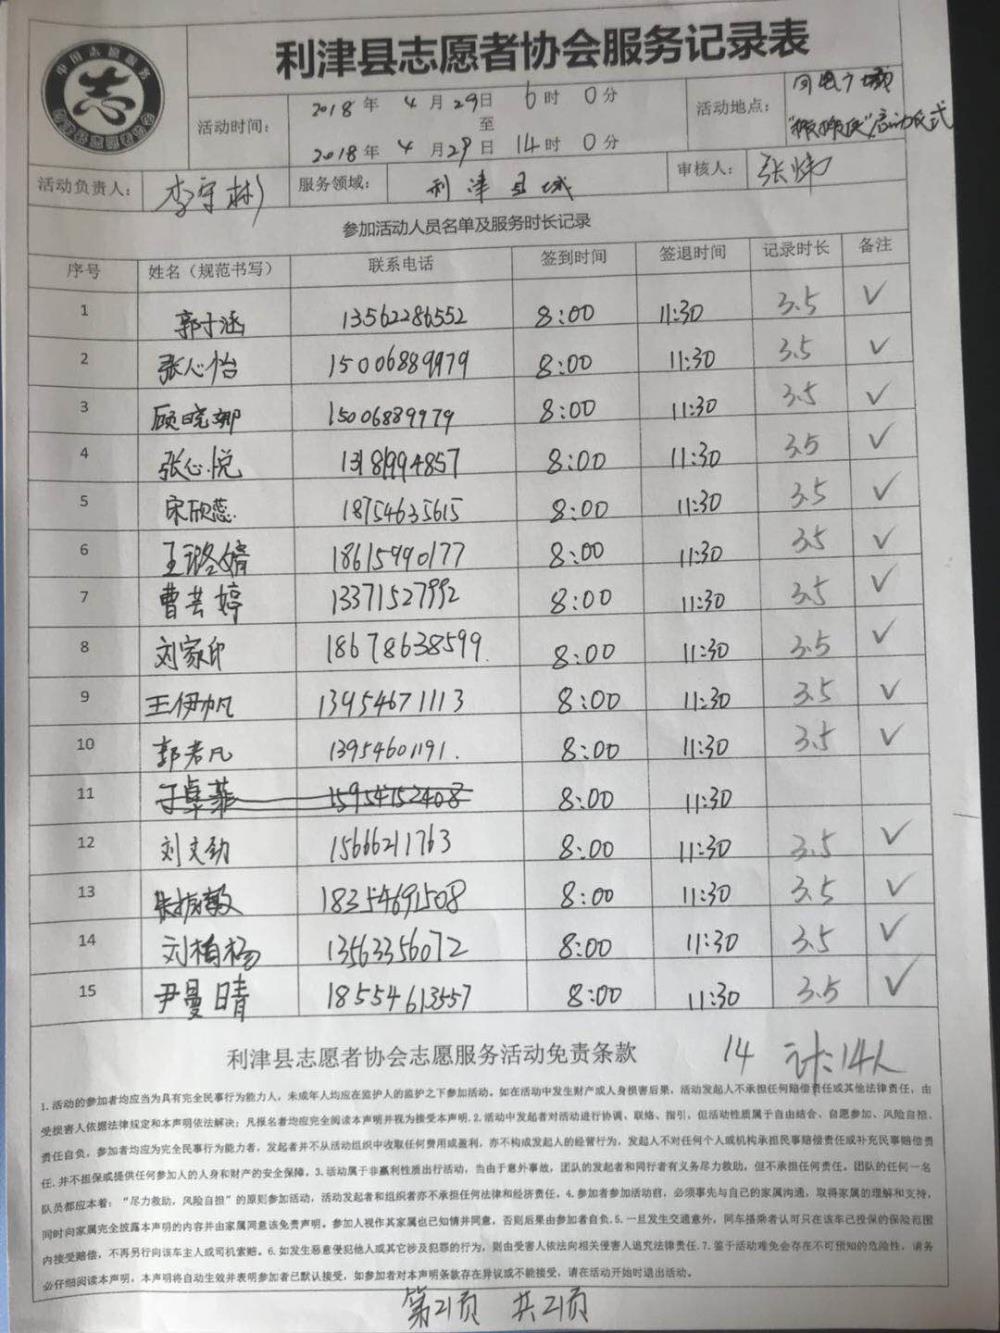 中国志愿服务
志
利津县志愿者协会服务记录表
活动时间： 2018 年 4 月 29 日 6 时 0 分
至
2018 年 4 月 29 日 14 时 0 分
活动地点：
启动仪式
活动负责人： 李守彬 服务领域： 利津县城 审核人： 张炜
参加活动人员名单及服务时长记录
序号 姓名（规范书写） 联系电话 签到时间 签退时间 记录时长 备注
1 郭寸涵 13562286552 8:00 11:30 3.5 ✓
2 张心怡 15006889979 8:00 11:30 3.5 ✓
3 顾晓娜 15006889979 8:00 11:30 3.5 ✓
4 张心悦 13181994857 8:00 11:30 3.5 ✓
5 宋欣蕊 18754635615 8:00 11:30 3.5 ✓
6 王璐婧 18615990177 8:00 11:30 3.5 ✓
7 曹芸婷 13371527992 8:00 11:30 3.5 ✓
8 刘家印 18678638599. 8:00 11:30 3.5 ✓
9 王伊帆 13954671113 8:00 11:30 3.5 ✓
10 郭若凡 13954601191. 8:00 11:30 3.5 ✓
11 于卓菲 15954752408 8:00 11:30
12 刘文劲 15666211763 8:00 11:30 3.5 ✓
13 张振敏 18354691508 8:00 11:30 3.5 ✓
14 刘柏杨 13563356072 8:00 11:30 3.5 ✓
15 尹曼晴 18554613557 8:00 11:30 3.5 ✓
利津县志愿者协会志愿服务活动免责条款 14 计:14人
1.活动的参加者均应当为具有完全民事行为能力人，未成年人均应在监护人的监护之下参加活动。如在活动中发生财产或人身损害后果，活动发起人不承担任何赔偿责任或其他法律责任，由
受损害人依据法律规定和本声明依法解决；凡报名者均应完全阅读本声明并视为接受本声明.2.活动中发起者对活动进行协调、联络、指引，但活动性质属于自由结合、自愿参加、风险自担、
责任自负，参加者均应为完全民事行为能力者，发起者并不从活动组织中收取任何费用或盈利，亦不构成发起人的经营行为，发起人不对任何个人或机构承担民事赔偿责任或补充民事赔偿责
任.并不担保或提供任何参加人的人身和财产的安全保障。3.活动属于非赢利性质出行活动，当由于意外事故，团队的发起者和同行者有义务尽力救助，但不承担任何责任。团队的任何一名
队员都应本着：“尽力救助，风险自担”的原则参加活动，活动发起者和组织者亦不承担任何法律和经济责任。4.参加者参加活动前，必须事先与自己的家属沟通，取得家属的理解和支持，
同时向家属完全披露本声明的内容并由家属同意该免责声明。参加人视作其家属也已知情并同意，否则后果由参加者自负.5.一旦发生交通意外，同车搭乘者认可只在该车已投保的保险范围
内接受赔偿，不再另行向该车主人或司机索赔。6.如发生恶意侵犯他人或其它涉及犯罪的行为，则由受害人依法向相关侵害人追究法律责任.7.鉴于活动难免会存在不可预知的危险性，请务
必仔细阅读本声明，本声明将自动生效并表明参加者已默认接受，如参加者对本声明条款存在异议或不能接受，请在活动开始时退出活动。
第21页 共21页